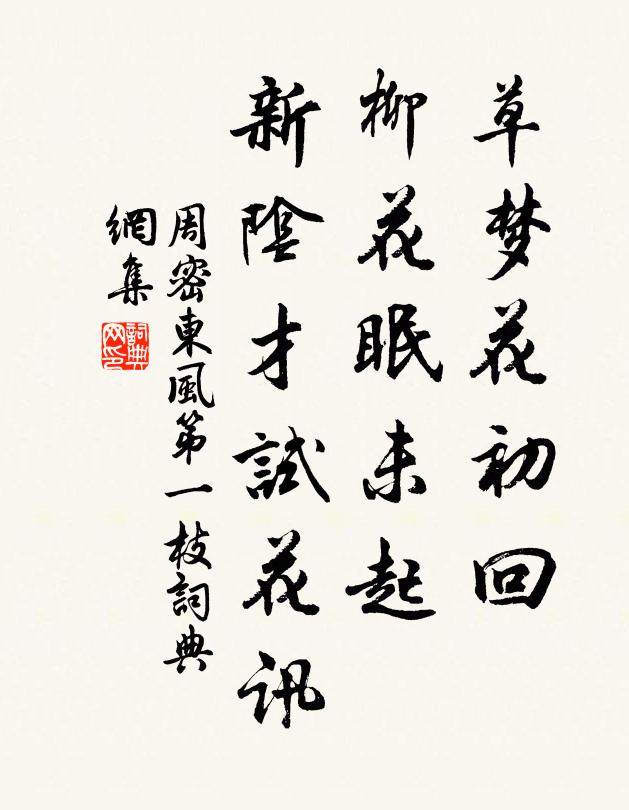 草梦花初回
柳花眠未起
新陰才試花訊
周密東風第一枝詞典
網集
詞典
网印